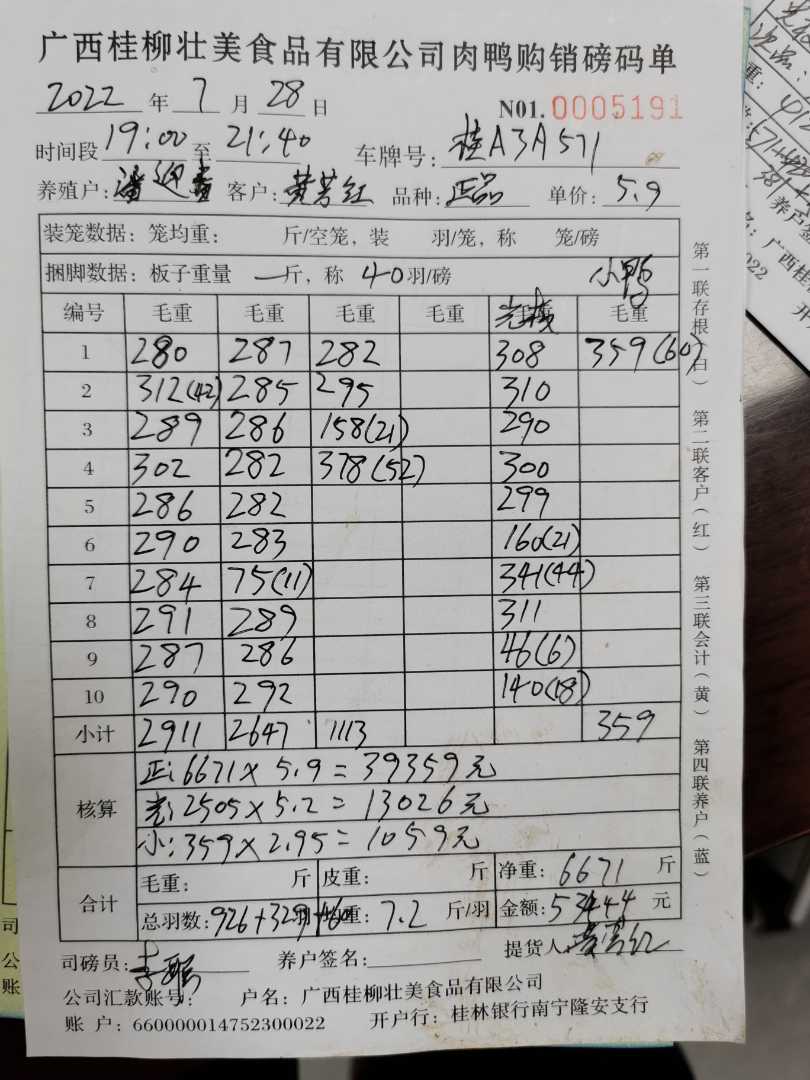 广西桂柳壮美食品有限公司肉鸭购销磅码单
2022 年 7 月 28 日 N01. 0005191
时间段 19:00 至 21:40 车牌号: 桂A3A571
养殖户: 潘迎 客户: 黄芳红 品种: 正品 单价: 5.9
装笼数据: 笼均重: 斤/空笼, 装 羽/笼, 称 笼/磅
捆脚数据: 板子重量 一斤, 称 40羽/磅 小鸭
编号 毛重 毛重 毛重 毛重 毛重
1 280 287 282 308 359(60)
2 312(42) 285 295 310
3 289 286 158(21) 290
4 302 282 378(52) 300
5 286 282 299
6 290 283 160(21)
7 284 75(11) 341(44)
8 291 289 311
9 287 286 46(6)
10 290 292 140(18)
小计 2911 2647 1113 359
核算
正: 6671 × 5.9 = 39359元
光: 2505 × 5.2 = 13026元
小: 359 × 2.95 = 1059元
合计
毛重: 斤 皮重: 斤 净重: 6671 斤
总羽数: 926+329+60 均重: 7.2 斤/羽 金额: 53444 元
司磅员: 养户签名: 提货人 黄芳红
公司汇款账号: 户名: 广西桂柳壮美食品有限公司
账 户: 660000014752300022 开户行: 桂林银行南宁隆安支行
第一联存根(白) 第二联客户(红) 第三联会计(黄) 第四联养户(蓝)